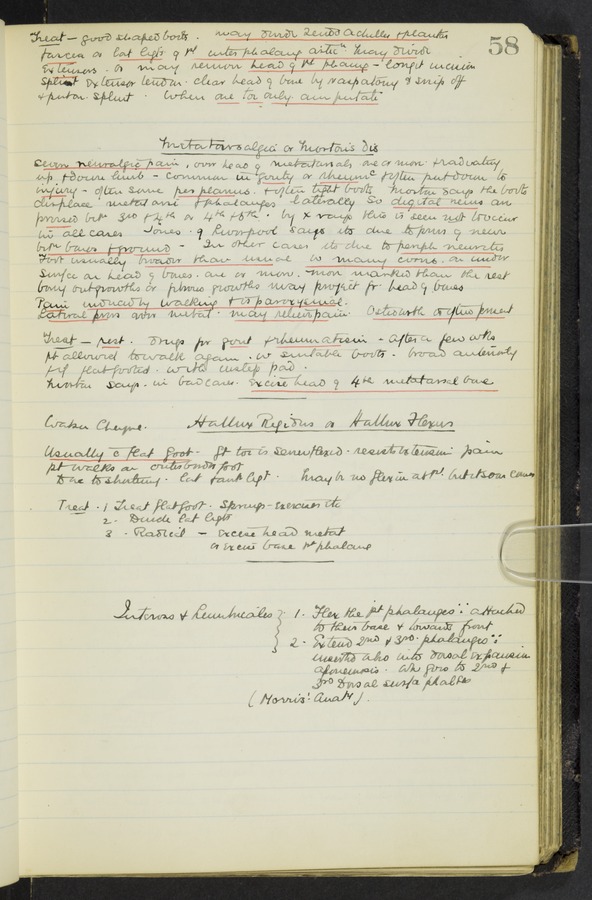 58
Treat - good shaped boots. may divide Tendo achilles & plantar
fascia or lat ligts of 1st interphalang articn. may divide
Extensors. or may remove head of 1st phalang - longit incision
split Extensor tendon. clear head of bone by raspatory & snip off
& put on splint. When one toe only amputate
Metatarsalgia or Morton's Dis
Severe neuralgic pain, over head of metatarsals one or more & radiating
up & down limb - common in gouty or rheumc & often put down to
injury - often some pes planus. & often tight boots. Morton says the boots
displace metatarsi & phalanges laterally so digital nerves are
pressed betn 3rd & 4th or 4th & 5th. by X rays this is seen not to occur
in all cases Jones of Liverpool says its due to press of nerve
betn bones & ground - In other cases its due to periph neuritis
Foot usually broader than usual & many corns on under
Surface on head of bones. one or more. more marked than the rest
bony outgrowths or fibrous growths may project fr head of bones
Pain induced by walking & is paroxysmal.
Lateral press over metat. may relieve pain. Osteoarth is often present
Treat - rest. Drugs for gout & rheumatism - after a few wks
pt allowed to walk again. in suitable boots. broad anteriorly
& if flatfooted. with instep pad.
Morton says. in bad cases. Excise head of 4th metatarsal bone
Watson Cheyne. Hallux Rigidus or Hallux Flexus
Usually c flat foot - Gt toe is semiflexed. resists extension pain
pt walks on outside of foot
Due to shortening. lat part ligt. May be no flexion at 1st. but it soon comes
Treat. 1 Treat flatfoot. Springs - exercises etc
2. Divide lat ligts
3. Radical - excise head metat
or excise base 1st phalang
Inteross & Lumbricales 1. Flex the 1st phalanges ∵ attached
to their base & towards front
2. Extend 2nd & 3rd phalanges ∵
inserted also into dorsal expansion
aponeurosis. wh goes to 2nd &
3rd dorsal surface phalges
(Morris' Anaty).